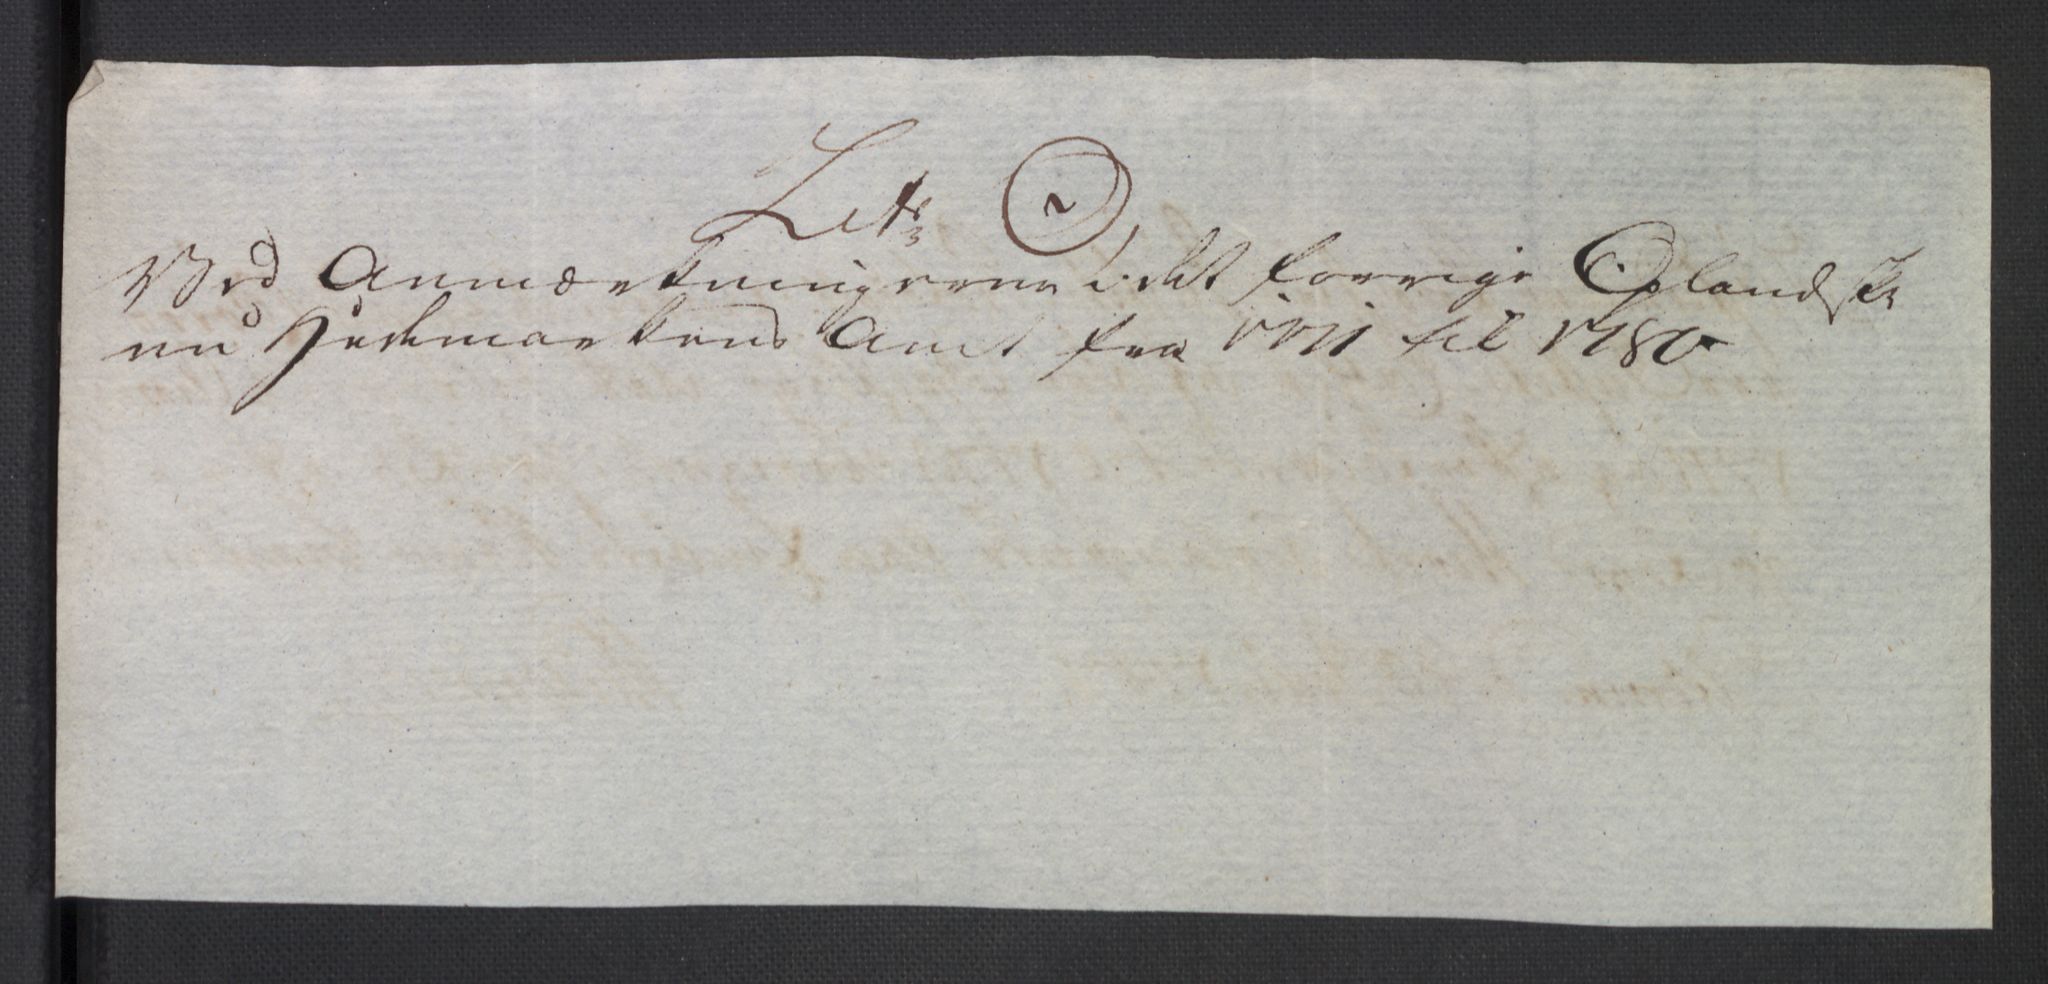 Litr
Ved Anmærkningerne i det forrige Oplandske
nu Hedemarkens Amt fra 1771 til 1780